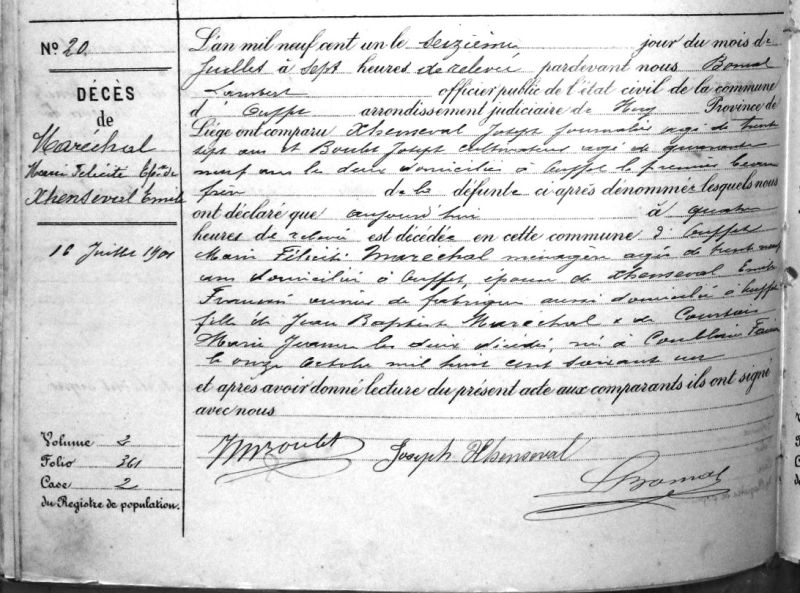 No 20
DÉCÈS
de
Maréchal
Marie Félicité Epse de
Xhenseval Emile
16 Juillet 1901
Volume 2
Folio 361
Case 2
du Registre de population.
L'an mil neuf cent un le seizième jour du mois de
Juillet à sept heures de relevée pardevant nous Bomal
Lambert officier public de l'état civil de la commune
d'Ouffet arrondissement judiciaire de Huy Province de
Liége ont comparu Xhenseval Joseph Journalier agé de trente
sept ans et Boulet Joseph cultivateur agé de quarante
neuf ans les deux domiciliés à Ouffet le premier beau
frère de la défunte ci après dénommée lesquels nous
ont déclaré que aujourd'hui à quatre
heures de relevée est décédée en cette commune d'Ouffet
Marie Félicité Maréchal ménagère agée de trente neuf
ans domiciliée à Ouffet, épouse de Xhenseval Emile
François ouvrier de fabrique aussi domicilié à Ouffet
fille de Jean Baptiste Maréchal & de Courtois
Marie Jeanne les deux décédés, née à Comblain Fairon
le onze Octobre mil huit cent soixante un
et après avoir donné lecture du présent acte aux comparants ils ont signé
avec nous
Joseph Xhenseval
LBomal